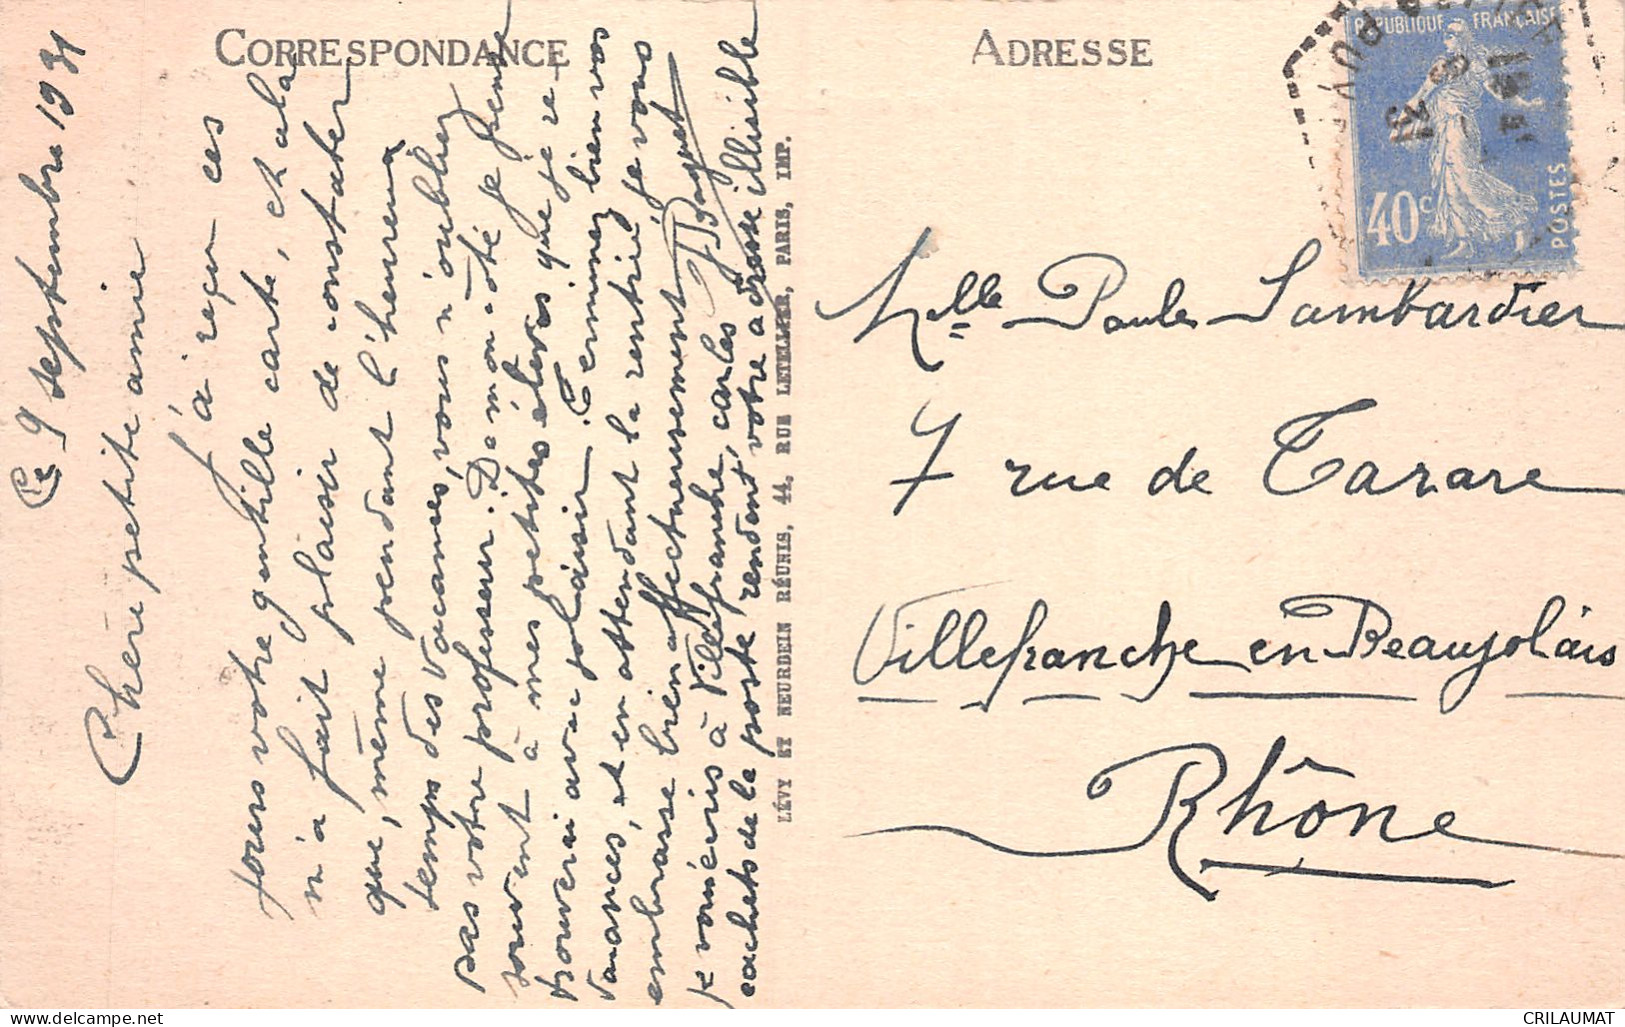 CORRESPONDANCE
ADRESSE
Ce 9 septembre 1931
Chère petite amie
J'ai reçu ces
jours votre gentille carte, et cela
m'a fait plaisir de constater
que, même pendant l'heureux
temps des vacances, vous n'oubliez
pas votre professeur. De mon côté je pense
souvent à mes petites élèves que je re-
trouverai avec plaisir. Terminez bien vos
vacances, et en attendant la rentrée je vous
embrasse bien affectueusement
je vous écris à Villefranche, car les
cachets de la poste rendent votre adresse illisible
LÉVY ET NEURDEIN RÉUNIS, 44, RUE LETELLIER, PARIS, IMP.
RÉPUBLIQUE FRANÇAISE
40c
POSTES
Mlle Paule Lambardier
7 rue de Tarare
Villefranche en Beaujolais
Rhône
CRILAUMAT